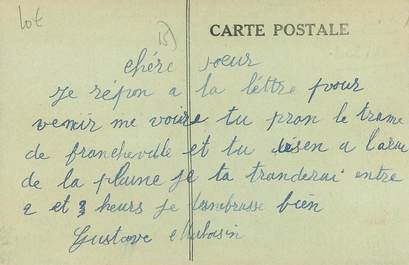 Lot
15)
CARTE POSTALE
chére soeur
Je répon a la léttre pour
venir me voire tu pran le trame
de francheville et tu désen a l'arai
de la plaine je ta tranderai entre
2 et 3 heurs je tambrasse bien
Gustave